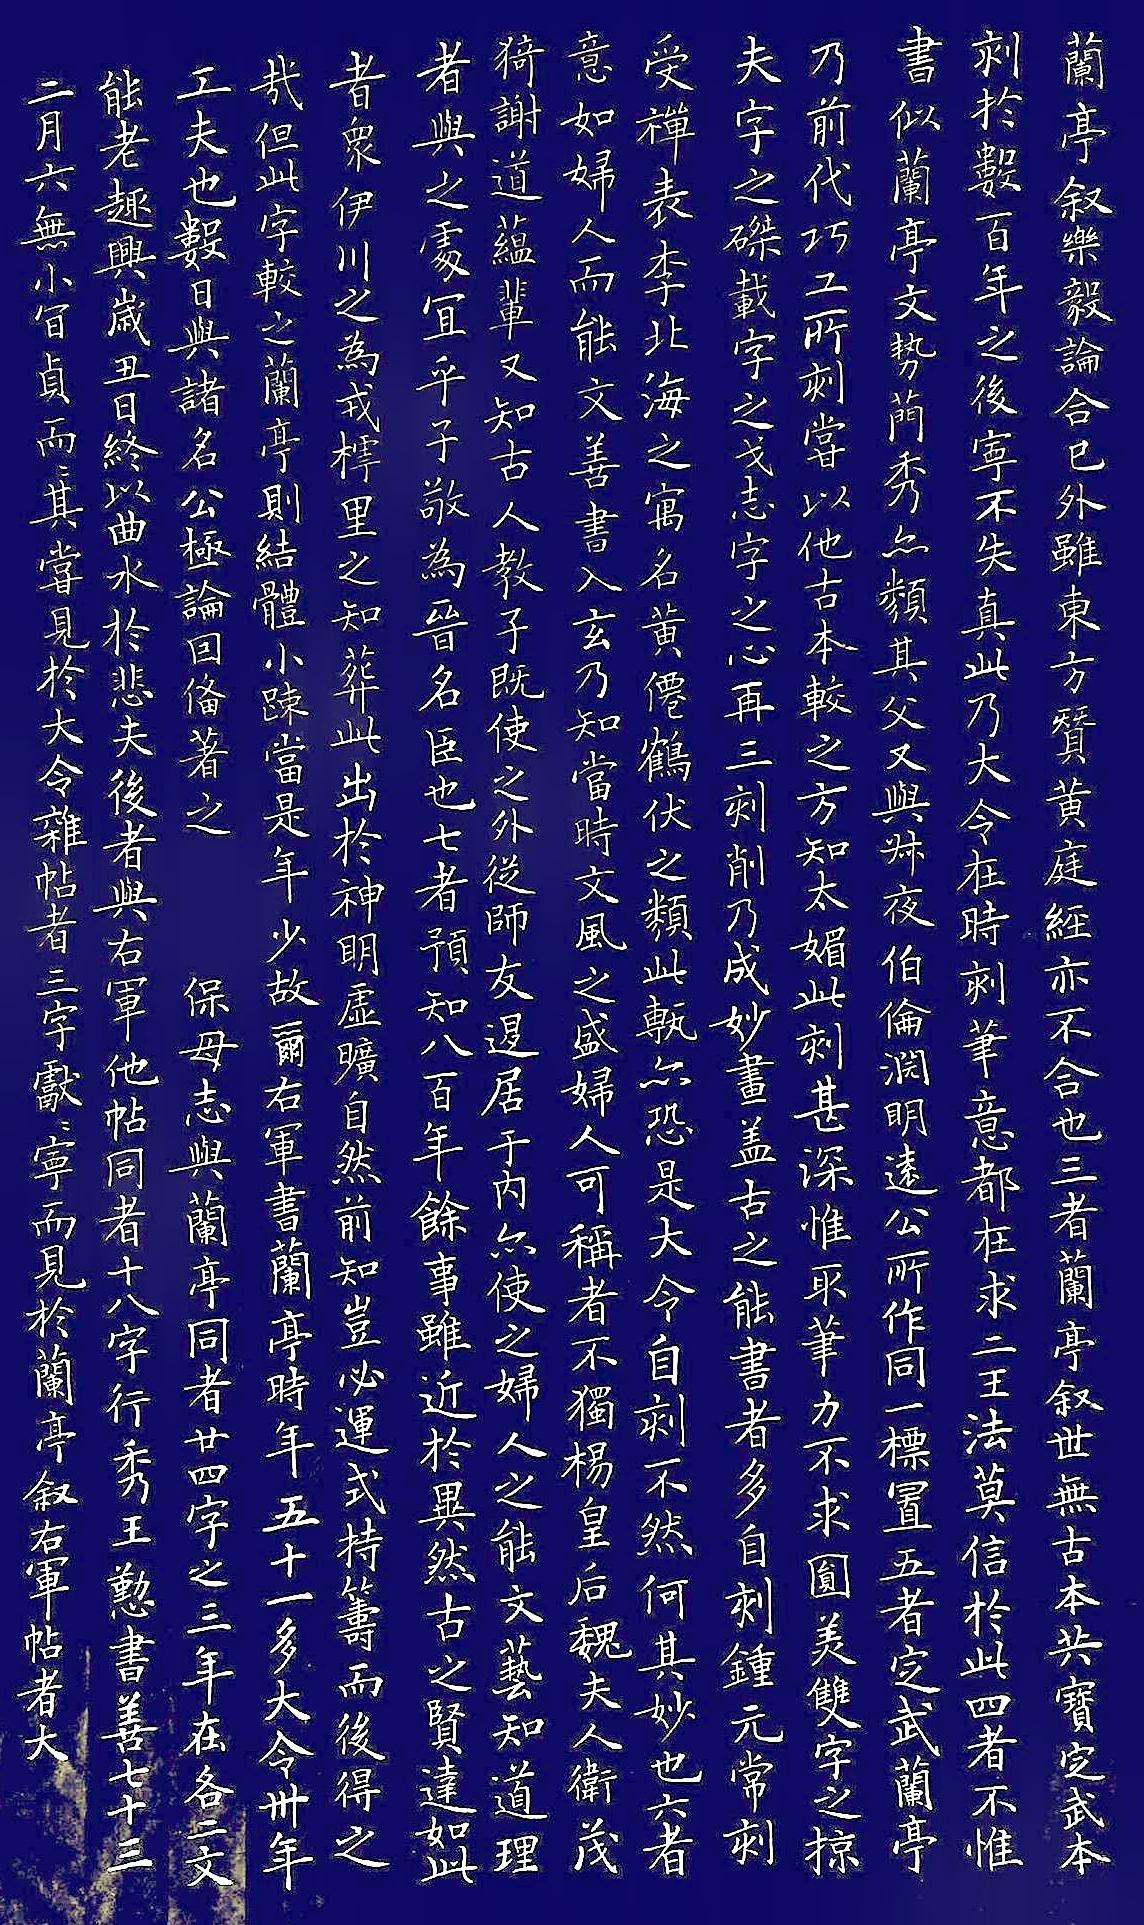 蘭亭叙樂毅論合已外雖東方贊黄庭經亦不合也三者蘭亭叙世無古本共寳定武本
刻於數百年之後寧不失真此乃大令在時刻筆意都在求二王法莫信於此四者不惟
書似蘭亭文勢蕳秀亦類其父又與叔夜伯倫渊明遠公所作同一標置五者定武蘭亭
乃前代巧工所刻當以他古本較之方知太媚此刻甚深惟取筆力不求圓美雙字之掠
夫字之磔載字之戈志字之心再三刻削乃成妙畫盖古之能書者多自刻鍾元常刻
受禪表李北海之寓名黄僊鶴伏之類此甎亦恐是大令自刻不然何其妙也六者
意如婦人而能文善書入玄乃知當時文風之盛婦人可稱者不獨楊皇后魏夫人衛茂
猗謝道藴輩又知古人教子既使之外從師友退居于内亦使之婦人之能文藝知道理
者與之處宜乎子敬為晉名臣也七者預知八百年餘事雖近於異然古之賢達如此
者衆伊川之為戎樗里之知葬此出於神明虚曠自然前知豈必運式持籌而後得之
㢤但此字較之蘭亭則結體小踈當是年少故爾右軍書蘭亭時年五十一多大令卅年
工夫也數日與諸名公極論回俻著之 保母志與蘭亭同者廿四字之三年在各二文
能老趣興歲丑日終以曲水於悲夫後者與右軍他帖同者十八字行秀王懃書善七十三
二月六無小宿貞而〻其當見於大令雜帖者三字獻〻寧而見於蘭亭叙右軍帖者大